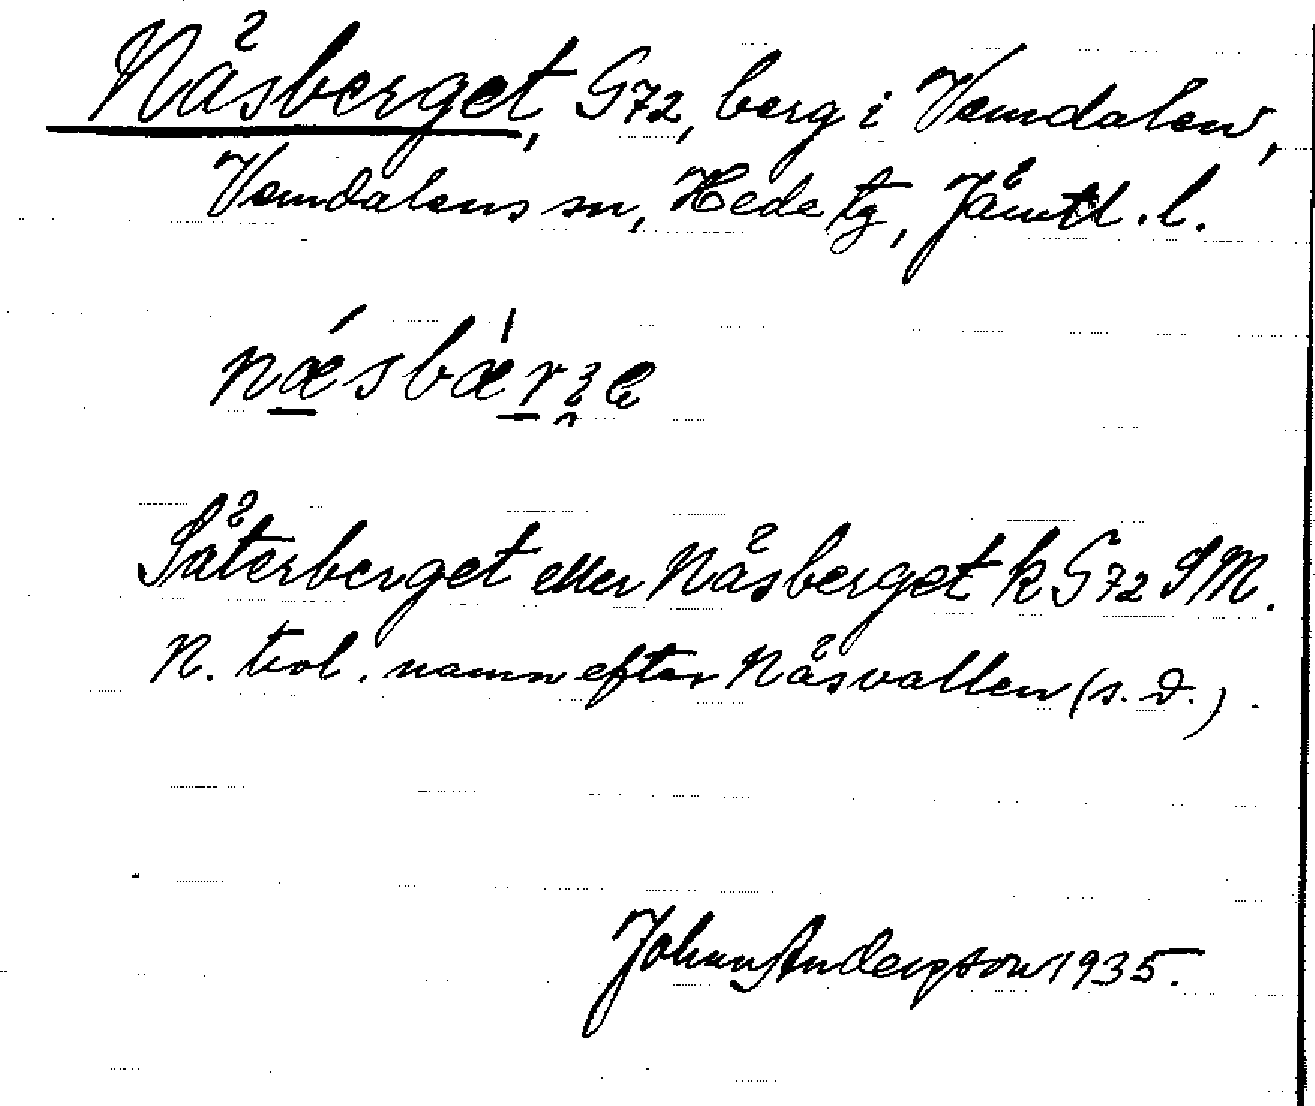 Näsberget, G72, berg i Vemdalen,
Vemdalens sn, Hede tg, Jämtl. l.
nǽsbæ̀rʒe
Säterberget eller Näsberget k G72 SM.
N. trol. namn efter Näsvallen (s. d.).
Johan Anderzson 1935.